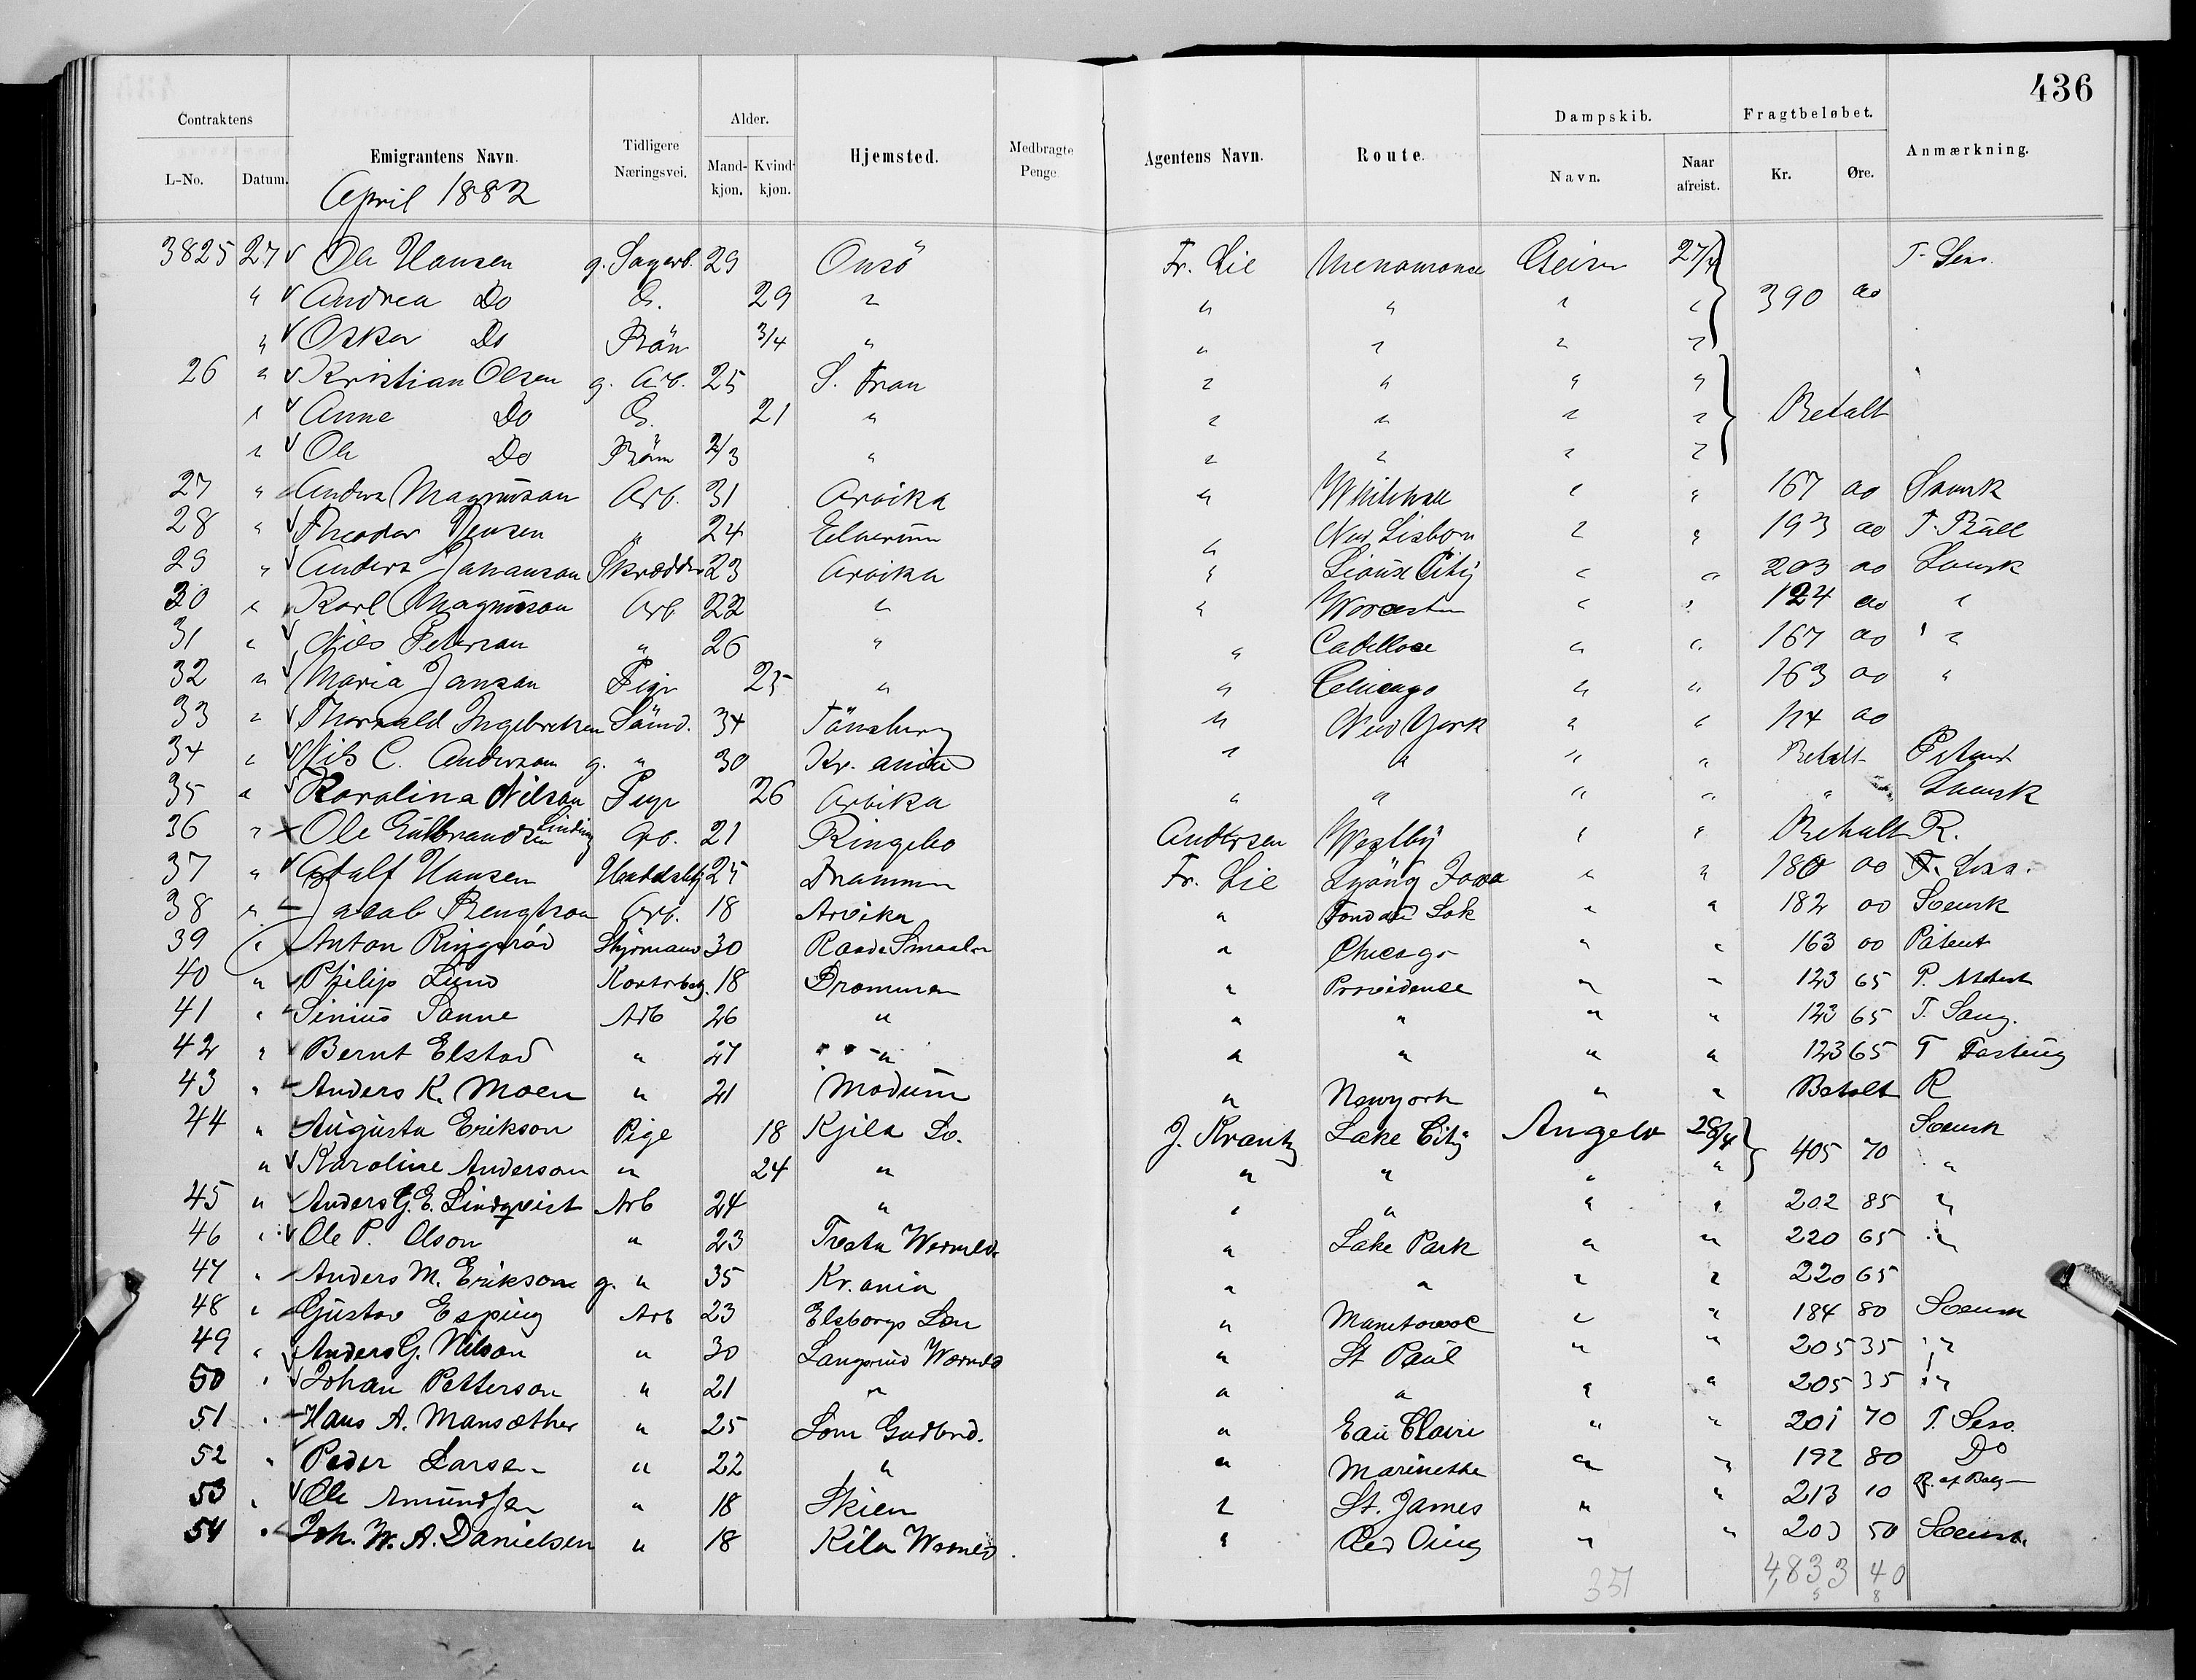 436
Contraktens Alder. Dampskib. Fragtbeløbet.
L-No. Datum. Emigrantens Navn. Tidligere Næringsvei. Mandkjøn. Kvindkjøn. Hjemsted. Medbragte Penge. Agentens Navn. Route. Navn. Naar afreist. Kr. Øre. Anmærkning.
April 1882
3825 27 Ole Hansen g. 29 Onsö Fr. Lie 27/4
" Andrea Do G. 29 " " " " " 390 00
" Oskar Do Barn 3/4 " " " " "
26 " Kristian Olsen g. Arb. 25 S. Fron " " " "
" Anne Do G. 21 " " " " " Betalt
" Ole Do Barn 2/3 " " " " "
27 " Anders Magnuson Arb. 31 Arvika " Whitehall " " 167 00 Svensk
28 " Theodor Jensen " 24 Elverum " New Lisbon " " 193 00
29 " Anders Johanson Skrædder 23 Arvika " Sioux City " " 203 00 Svensk
30 " Karl Magnuson Arb 22 " " Worcester " " 124 00 "
31 " Nils Peterson " 26 " " Cadillac " " 167 00 "
32 " Maria Janson Pige 25 " " Chicago " " 163 00 "
33 " Thorvald Ingebretsen Sömd. 34 Tönsberg " New York " " 114 00
34 " Nils C. Anderson g. " 30 Kr. ania " " " " Betalt Patent
35 " Karolina Nilson Pige 26 Arvika " " " " " Svensk
36 " Ole Gulbrandsen Arb. 21 Ringebo Andersen Westby " " Betalt R.
37 " Adolf Hansen 25 Drammen Fr. Lie Iowa " " 180 00
38 " Jacob Bengtson Arb. 18 Arvika " Fond du Lak " " 182 00 Svensk
39 " Anton Ringsröd Styrmand 30 Raade Smaal. " Chicago " " 163 00 Patent
40 " Philip Lund Kontorbetj. 18 Drammen " Providense " " 123 65 P. Attest
41 " Sinius Sanne Arb 26 " " " " " 123 65 T. Sang.
42 " Bernt Elstad " 27 " " " " " 123 65
43 " Anders K. Moen " 21 Modum " Newyork " " Betalt R
44 " Augusta Erikson Pige 18 Kjila So. J. Krantz Lake City Angelo 28/4 Svensk
" Karoline Anderson " 24 " " " " " 405 70 "
45 " Anders G. E. Lindqvist Arb 24 " " " " " 202 85 "
46 " Ole P. Olson " 23 " Lake Park " " 220 65 "
47 " Anders M. Erikson g. " 35 Kr. ania " " " " 220 65
48 " Gustav Esping Arb 23 Elsborgs Len " Manitowoc " " 184 80 Svensk
49 " Anders G. Nilson " 30 " St Paul " " 205 35 "
50 " Johan Petterson " 21 " " " " " 205 35 "
51 " Hans A. Mansæther " 25 Lom Gudbrd. " Eau Claire " " 201 70 T. Sess.
52 " Peder Larsen " 22 " " Marinette " " 192 80 Do
53 " Ole Amundsen " 18 Skien " St. James " " 213 10
54 " Joh. W. A. Danielsen " 18 Kila Wermld. " Red Wing " " 203 50 Svensk.
351 4,833 40